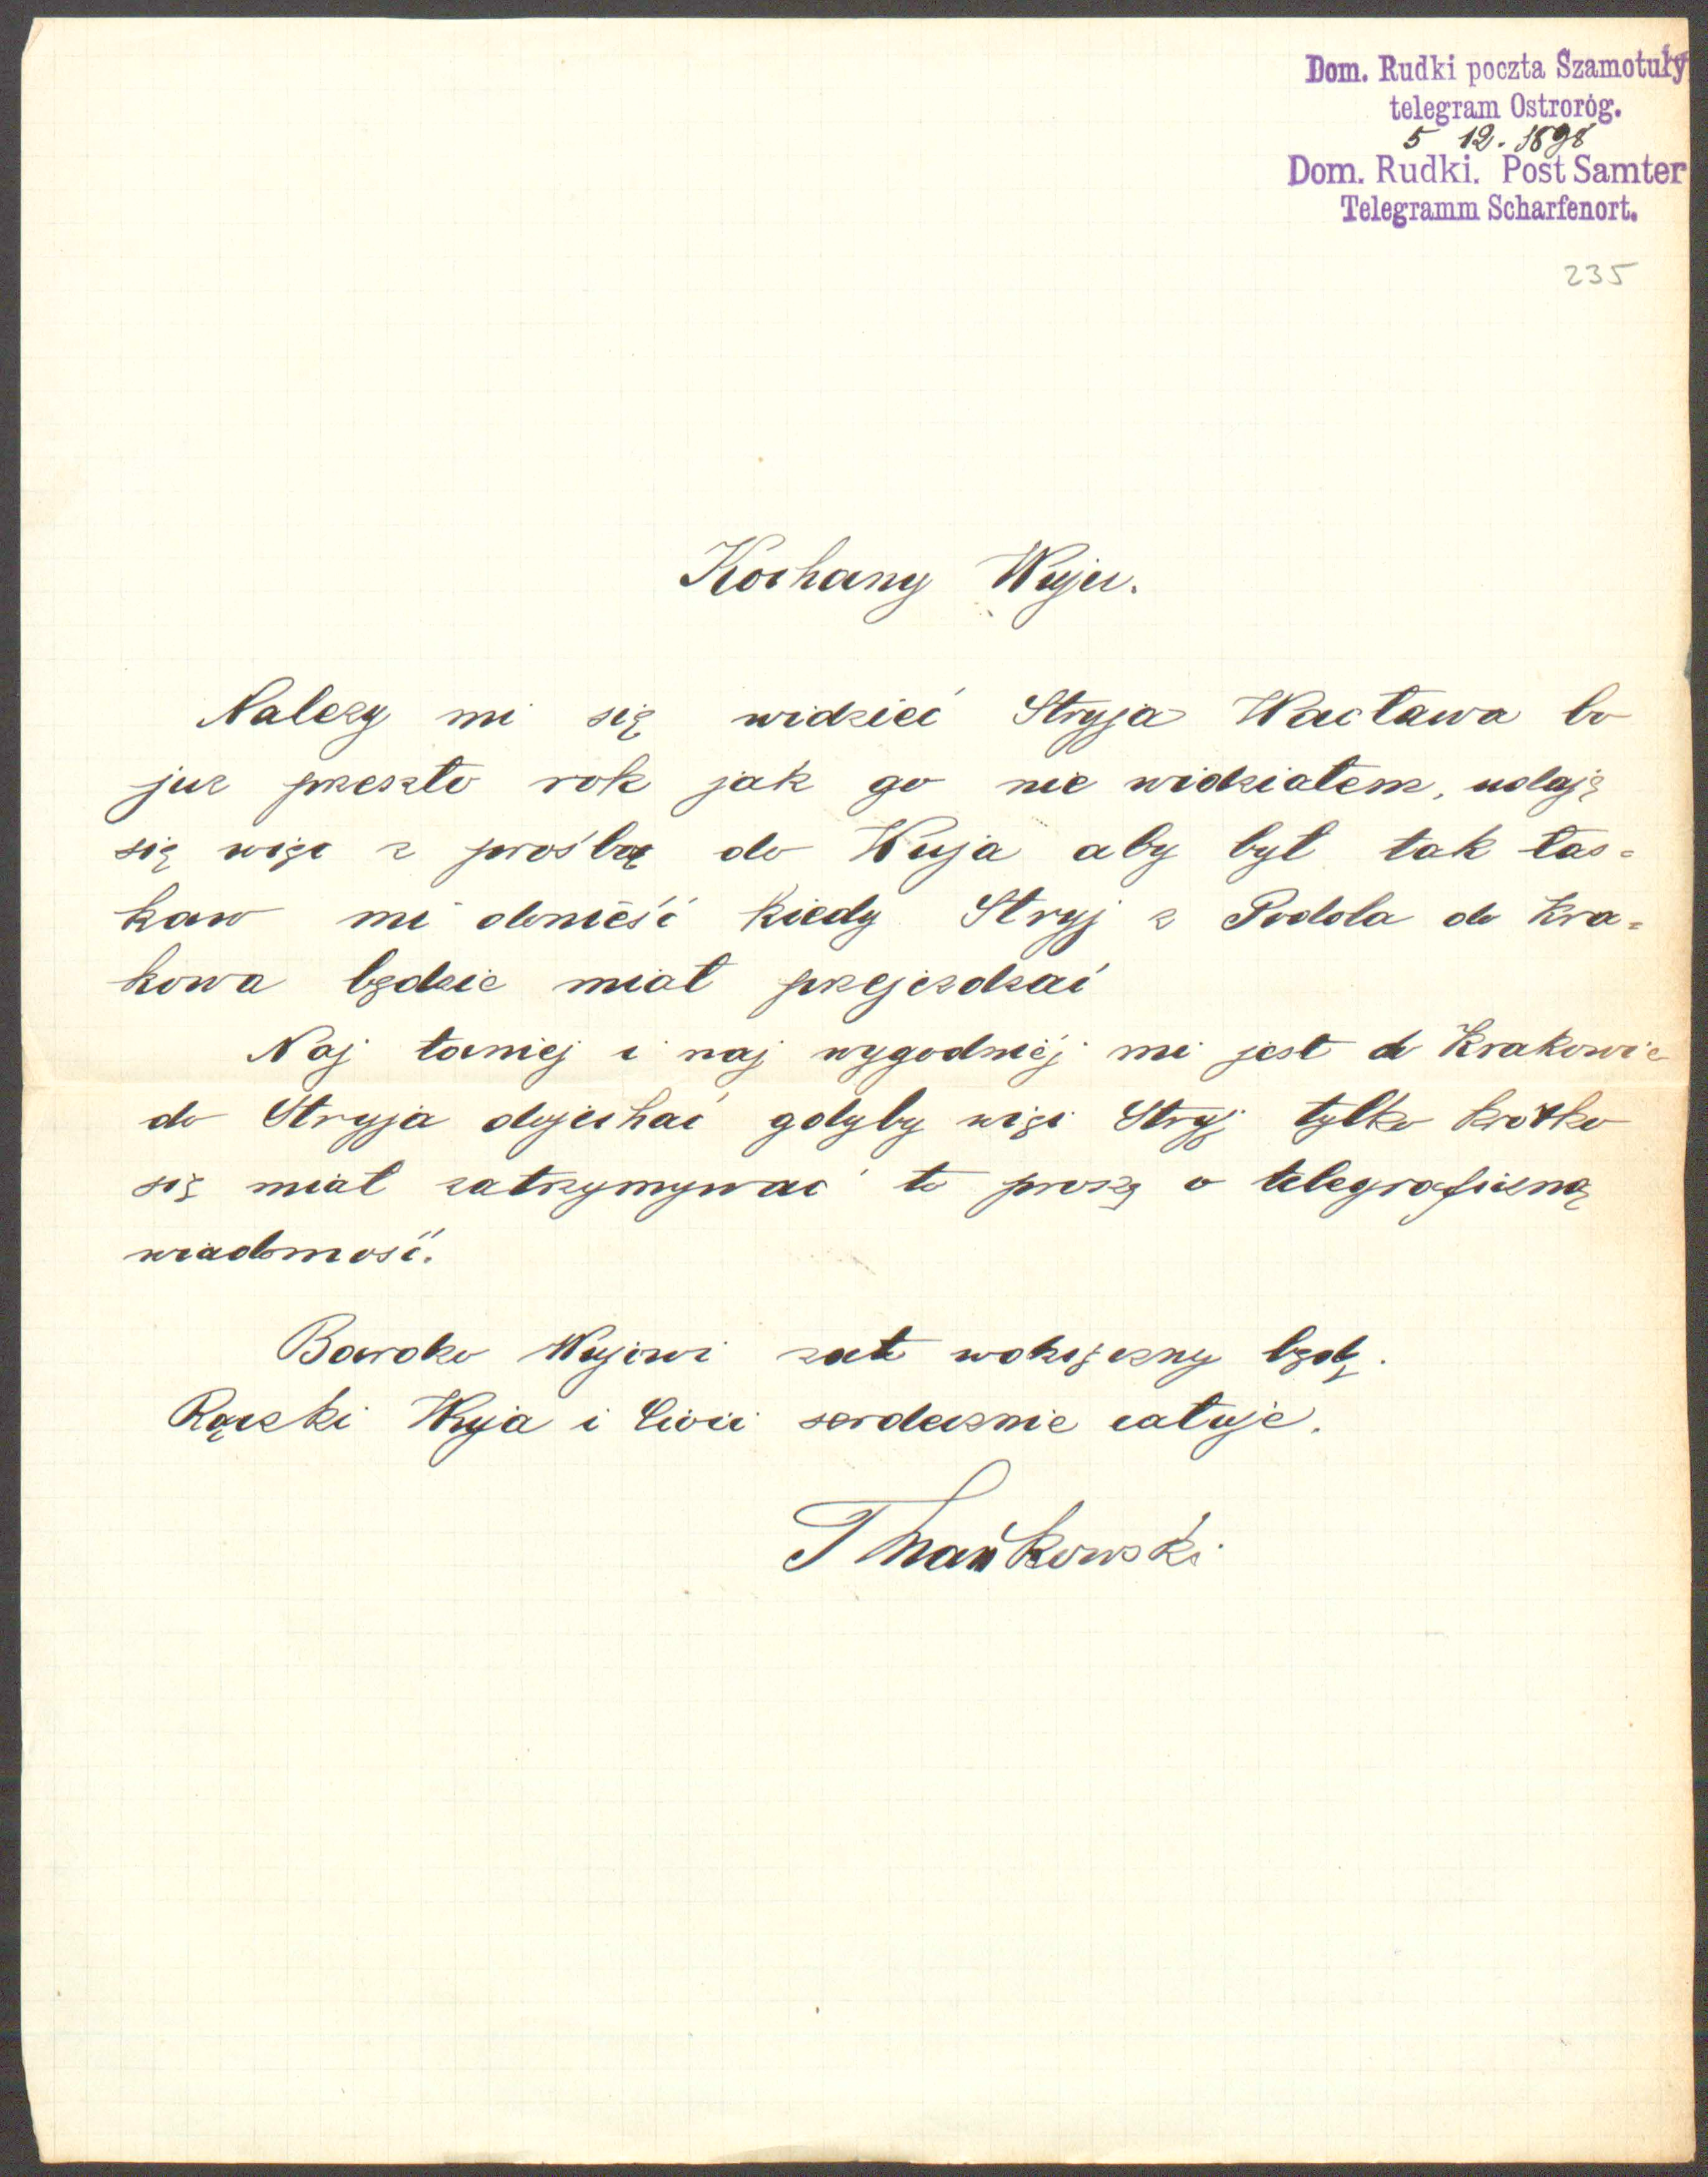 Dom. Rudki poczta Szamotuły
telegram Ostroróg.
5 12. 1898
Dom. Rudki. Post Samter
Telegramm Scharfenort.
235
Kochany Wuju.
Nalezy mi się widzieć Stryja Wacława bo
juz przeszło rok jak go nie widziałem, udaję
się więc z prośbą do Wuja aby był tak łas=
kaw mi donieść kiedy Stryj z Podola do Kra=
kowa będzie miał przejezdzać
Naj taniej i naj wygodniéj mi jest do Krakowie
do Stryja dojechać gdyby więc Stryj tylko krótko
się miał zatrzymywać to proszę o telegraficzną
wiadomość.
Bardzo Wujowi zato wdzięczny będę.
Rączki Wuja i Cioci serdecznie całuje.
Mańkowski